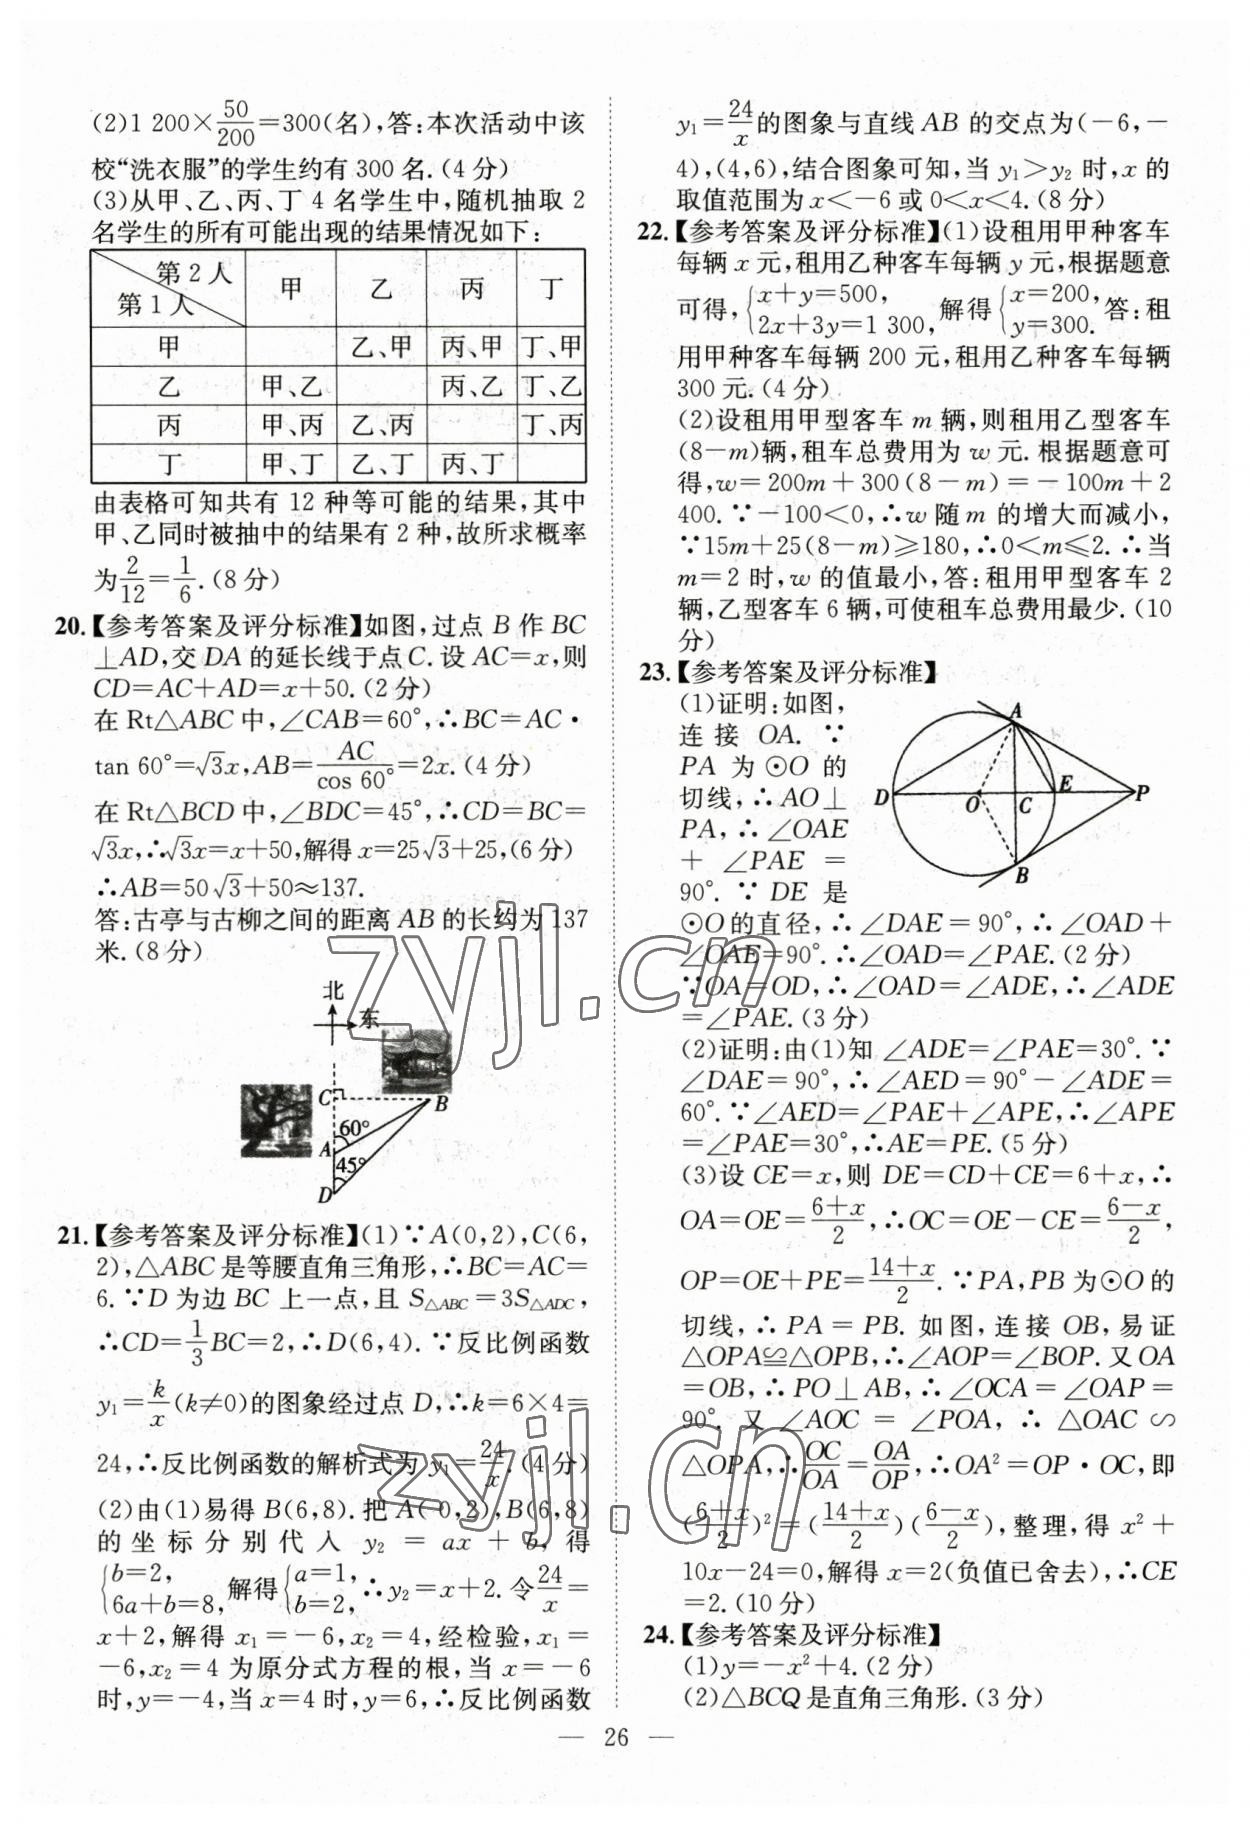 (2)1 200×50/200=300(名),答:本次活动中该
校“洗衣服”的学生约有 300 名.(4 分)
(3)从甲、乙、丙、丁 4 名学生中,随机抽取 2
名学生的所有可能出现的结果情况如下:
第 2 人 甲 乙 丙 丁
第 1 人
甲 乙、甲 丙、甲 丁、甲
乙 甲、乙 丙、乙 丁、乙
丙 甲、丙 乙、丙 丁、丙
丁 甲、丁 乙、丁 丙、丁
由表格可知共有 12 种等可能的结果,其中
甲、乙同时被抽中的结果有 2 种,故所求概率
为2/12=1/6.(8 分)
20.【参考答案及评分标准】如图,过点 B 作 BC
⊥AD,交 DA 的延长线于点 C. 设 AC=x,则
CD=AC+AD=x+50.(2 分)
在 Rt△ABC 中,∠CAB=60°,∴BC=AC·
tan 60°=√3x,AB=AC/cos 60°=2x.(4 分)
在 Rt△BCD 中,∠BDC=45°,∴CD=BC=
√3x,∴√3x=x+50,解得 x=25√3+25,(6 分)
∴AB=50√3+50≈137.
答:古亭与古柳之间的距离 AB 的长约为 137
米.(8 分)
北
东
C
B
60°
A
45°
D
21.【参考答案及评分标准】(1)∵A(0,2),C(6,
2),△ABC 是等腰直角三角形,∴BC=AC=
6. ∵D 为边 BC 上一点,且 S△ABC=3S△ADC,
∴CD=1/3BC=2,∴D(6,4). ∵反比例函数
y₁=k/x(k≠0)的图象经过点 D,∴k=6×4=
24,∴反比例函数的解析式为 y₁=24/x.(4 分)
(2)由(1)易得 B(6,8). 把 A(0,2),B(6,8)
的坐标分别代入 y₂ = ax + b, 得
{b=2, 6a+b=8, 解得{a=1, b=2, ∴y₂=x+2. 令24/x=
x+2,解得 x₁=-6,x₂=4,经检验,x₁=
-6,x₂=4 为原分式方程的根,当 x=-6
时,y=-4,当 x=4 时,y=6,∴反比例函数
y₁=24/x的图象与直线 AB 的交点为(-6,-
4),(4,6),结合图象可知,当 y₁>y₂ 时,x 的
取值范围为 x<-6 或 0<x<4.(8 分)
22.【参考答案及评分标准】(1)设租用甲种客车
每辆 x 元,租用乙种客车每辆 y 元,根据题意
可得,{x+y=500, 2x+3y=1 300, 解得{x=200, y=300. 答:租
用甲种客车每辆 200 元,租用乙种客车每辆
300 元.(4 分)
(2)设租用甲型客车 m 辆,则租用乙型客车
(8-m)辆,租车总费用为 w 元. 根据题意可
得,w=200m+300(8-m)=-100m+2
400. ∵-100<0,∴w 随 m 的增大而减小,
∵15m+25(8-m)≥180,∴0<m≤2. ∴当
m=2 时,w 的值最小,答:租用甲型客车 2
辆,乙型客车 6 辆,可使租车总费用最少.(10
分)
23.【参考答案及评分标准】
(1)证明:如图,
连接 OA. ∵
PA 为⊙O 的
切线,∴AO⊥
PA,∴∠OAE
+ ∠PAE =
90°. ∵ DE 是
A
D
O
C
E
P
B
⊙O 的直径,∴∠DAE=90°,∴∠OAD+
∠OAE=90°. ∴∠OAD=∠PAE.(2 分)
∵OA=OD,∴∠OAD=∠ADE,∴∠ADE
=∠PAE.(3 分)
(2)证明:由(1)知 ∠ADE=∠PAE=30°. ∵
∠DAE=90°,∴∠AED=90°-∠ADE=
60°. ∵∠AED=∠PAE+∠APE,∴∠APE
=∠PAE=30°,∴AE=PE.(5 分)
(3)设 CE=x,则 DE=CD+CE=6+x,∴
OA=OE=(6+x)/2,∴OC=OE-CE=(6-x)/2,
OP=OE+PE=(14+x)/2. ∵PA,PB 为⊙O 的
切线,∴PA=PB. 如图,连接 OB,易证
△OPA≌△OPB,∴∠AOP=∠BOP. 又 OA
=OB,∴PO⊥AB,∴∠OCA=∠OAP=
90°. 又 ∠AOC = ∠POA,∴ △OAC ∽
△OPA,∴OC/OA=OA/OP,∴OA²=OP·OC,即
((6+x)/2)²=((14+x)/2)((6-x)/2),整理,得 x²+
10x-24=0,解得 x=2(负值已舍去),∴CE
=2.(10 分)
24.【参考答案及评分标准】
(1)y=-x²+4.(2 分)
(2)△BCQ 是直角三角形.(3 分)
— 26 —
zyjl.cn
zyjl.cn